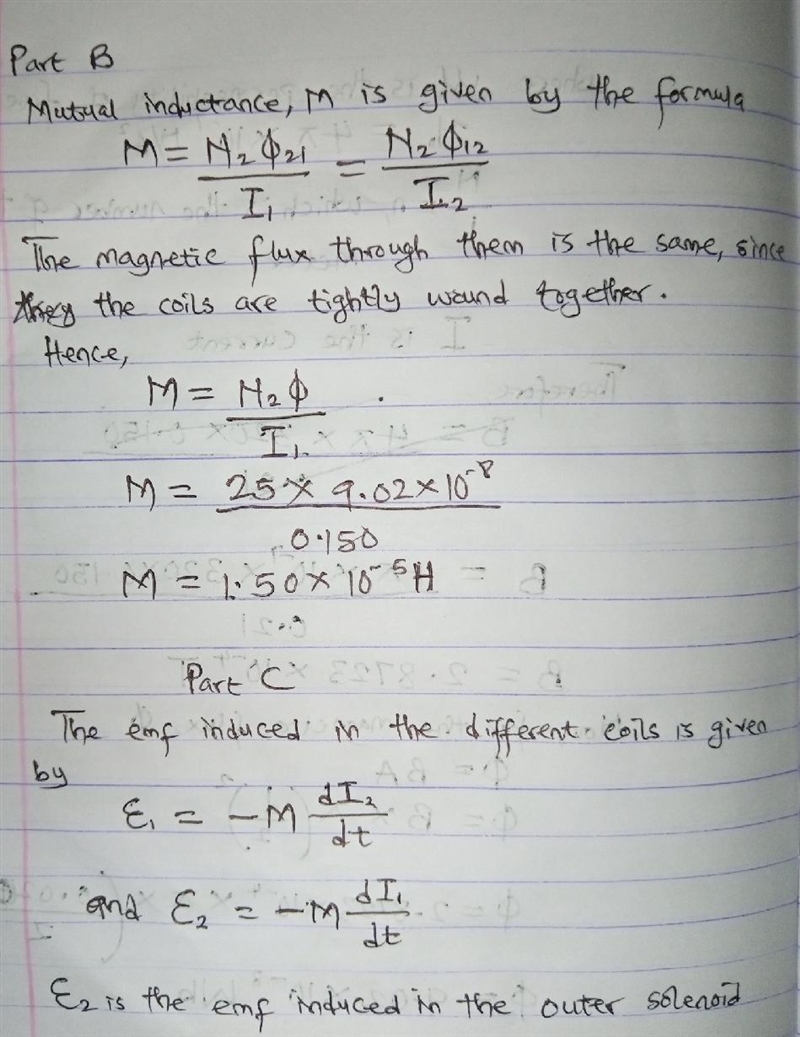 Part B
Mutual inductance, M is given by the formula
M = N₂Φ₂₁/I₁ = N₂Φ₁₂/I₂
The magnetic flux through them is the same, since
the coils are tightly wound together.
Hence,
M = N₂Φ/I₁
M = 25 × 9.02 × 10⁻⁸/0.150
M = 1.50 × 10⁻⁵ H
Part C
The emf induced in the different coils is given
by
ε₁ = -M dI₂/dt
and ε₂ = -M dI₁/dt
ε₂ is the emf induced in the outer solenoid